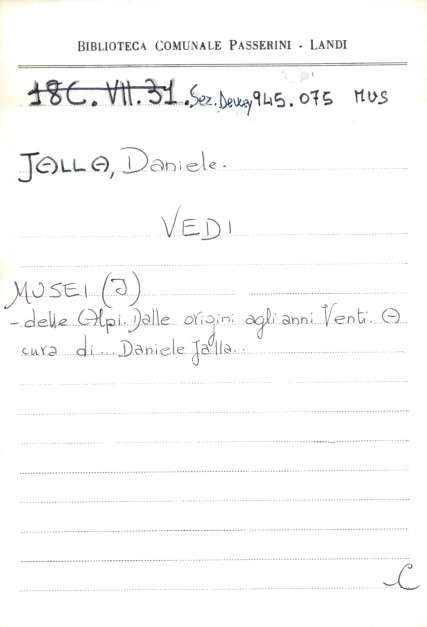 BIBLIOTECA COMUNALE PASSERINI - LANDI
18C. VII. 31. Sez. Dewey 945.075 MUS
JALLA, Daniele.
VEDI
MUSEI (I)
- delle Alpi. Dalle origini agli anni Venti. A
cura di... Daniele Jalla...
C